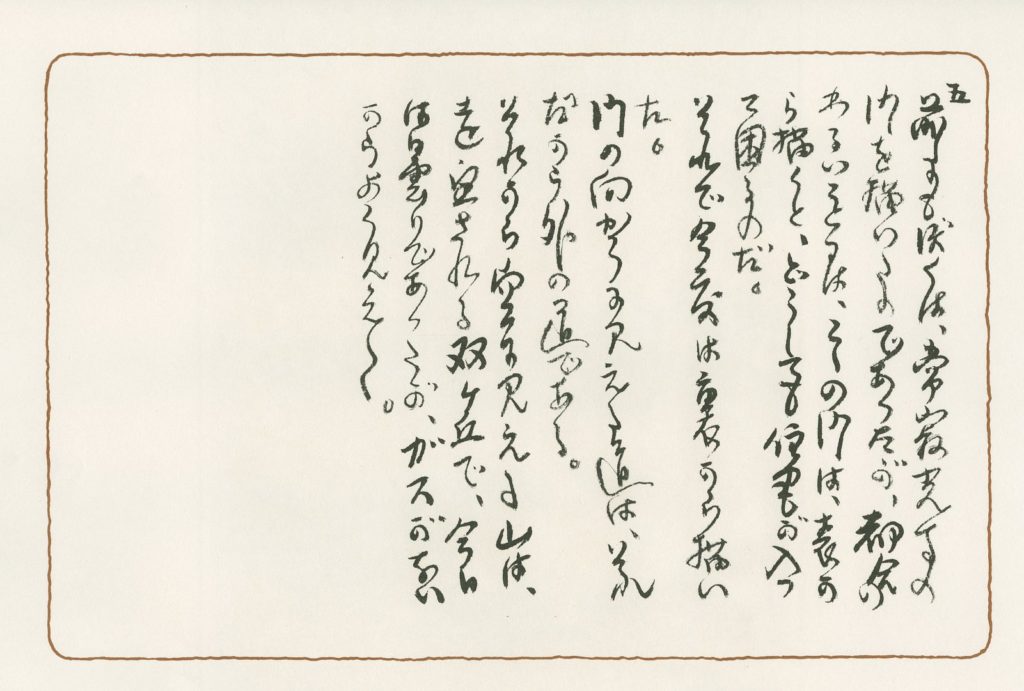 五
前にも僕は、常寂光寺の
門を描いたのであったが、都合の
わるいことには、ここの門は、表か
ら描くと、どうしても住宅が入っ
て困るのだ。
それで今度は裏から描い
た。
門の向かうに見える道は、
だから外の道である。
それから向うに見える山は、
遠望される双ケ丘で、今日
は曇りであったが、ガスがない
からよく見えた。